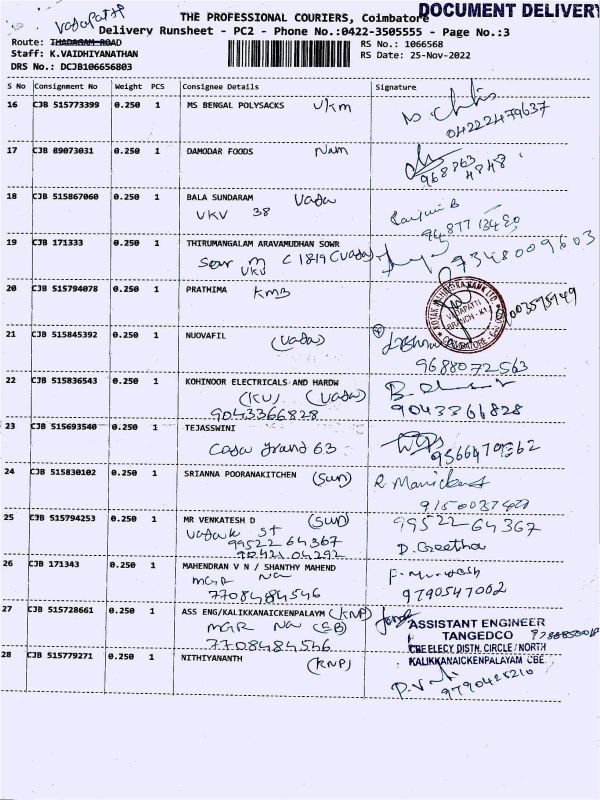 vadapatti
THE PROFESSIONAL COURIERS, Coimbatore
DOCUMENT DELIVERY
Delivery Runsheet - PC2 - Phone No.:0422-3505555 - Page No.:3
Route: THADAGAM ROAD
RS No.: 1066568
Staff: K.VAIDHIYANATHAN
RS Date: 25-Nov-2022
DRS No.: DCJB106656803
S No Consignment No Weight PCS Consignee Details Signature
16 CJB 515773399 0.250 1 MS BENGAL POLYSACKS Vkm
04222479637
17 CJB 89073031 0.250 1 DAMODAR FOODS Nam
968763
4848
18 CJB 515867060 0.250 1 BALA SUNDARAM Vada
VKV 38
9487713480
19 CJB 171333 0.250 1 THIRUMANGALAM ARAVAMUDHAN SOWR
Sowr m C 1819 (Vada)
VKV
9348009603
20 CJB 515794078 0.250 1 PRATHIMA KMB
KOTAK MAHINDRA BANK LTD.
VADAPATTI
BRANCH - K1
COIMBATORE
21 CJB 515845392 0.250 1 NUOVAFIL (Vada)
9688072563
22 CJB 515836543 0.250 1 KOHINOOR ELECTRICALS AND HARDW
(KV) (Vada)
9043366828 9043366828
23 CJB 515693540 0.250 1 TEJASSWINI
Casa grand 63
9566479362
24 CJB 515830102 0.250 1 SRIANNA POORANAKITCHEN (Sun)
R. Manickam
25 CJB 515794253 0.250 1 MR VENKATESH D (Sun) 9952264367
St
9952264367
9042104292 D. Geetha
26 CJB 171343 0.250 1 MAHENDRAN V N / SHANTHY MAHEND
MGR Na
7708484546 9790547002
27 CJB 515728661 0.250 1 ASS ENG/KALIKKANAICKENPALAYM (KNP)
MGR Na (EB)
7708484546
ASSISTANT ENGINEER
TANGEDCO
CBE ELECY DISTN. CIRCLE / NORTH
KALIKKANAICKENPALAYAM CBE
28 CJB 515779271 0.250 1 NITHIYANANTH (KNP)
9790425210